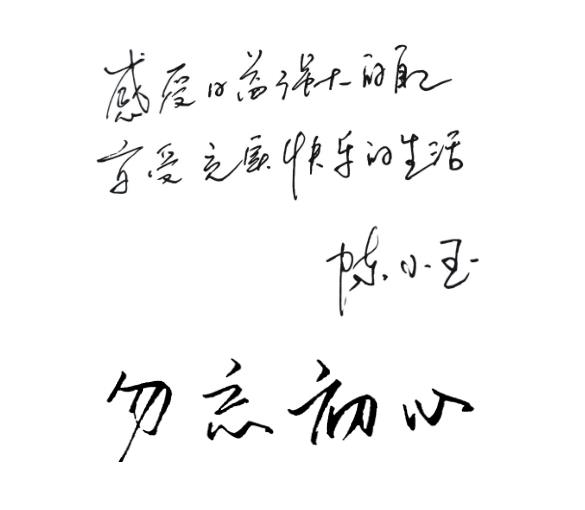 感受日益强大的自己
享受充实快乐的生活
陈小玉
勿忘初心